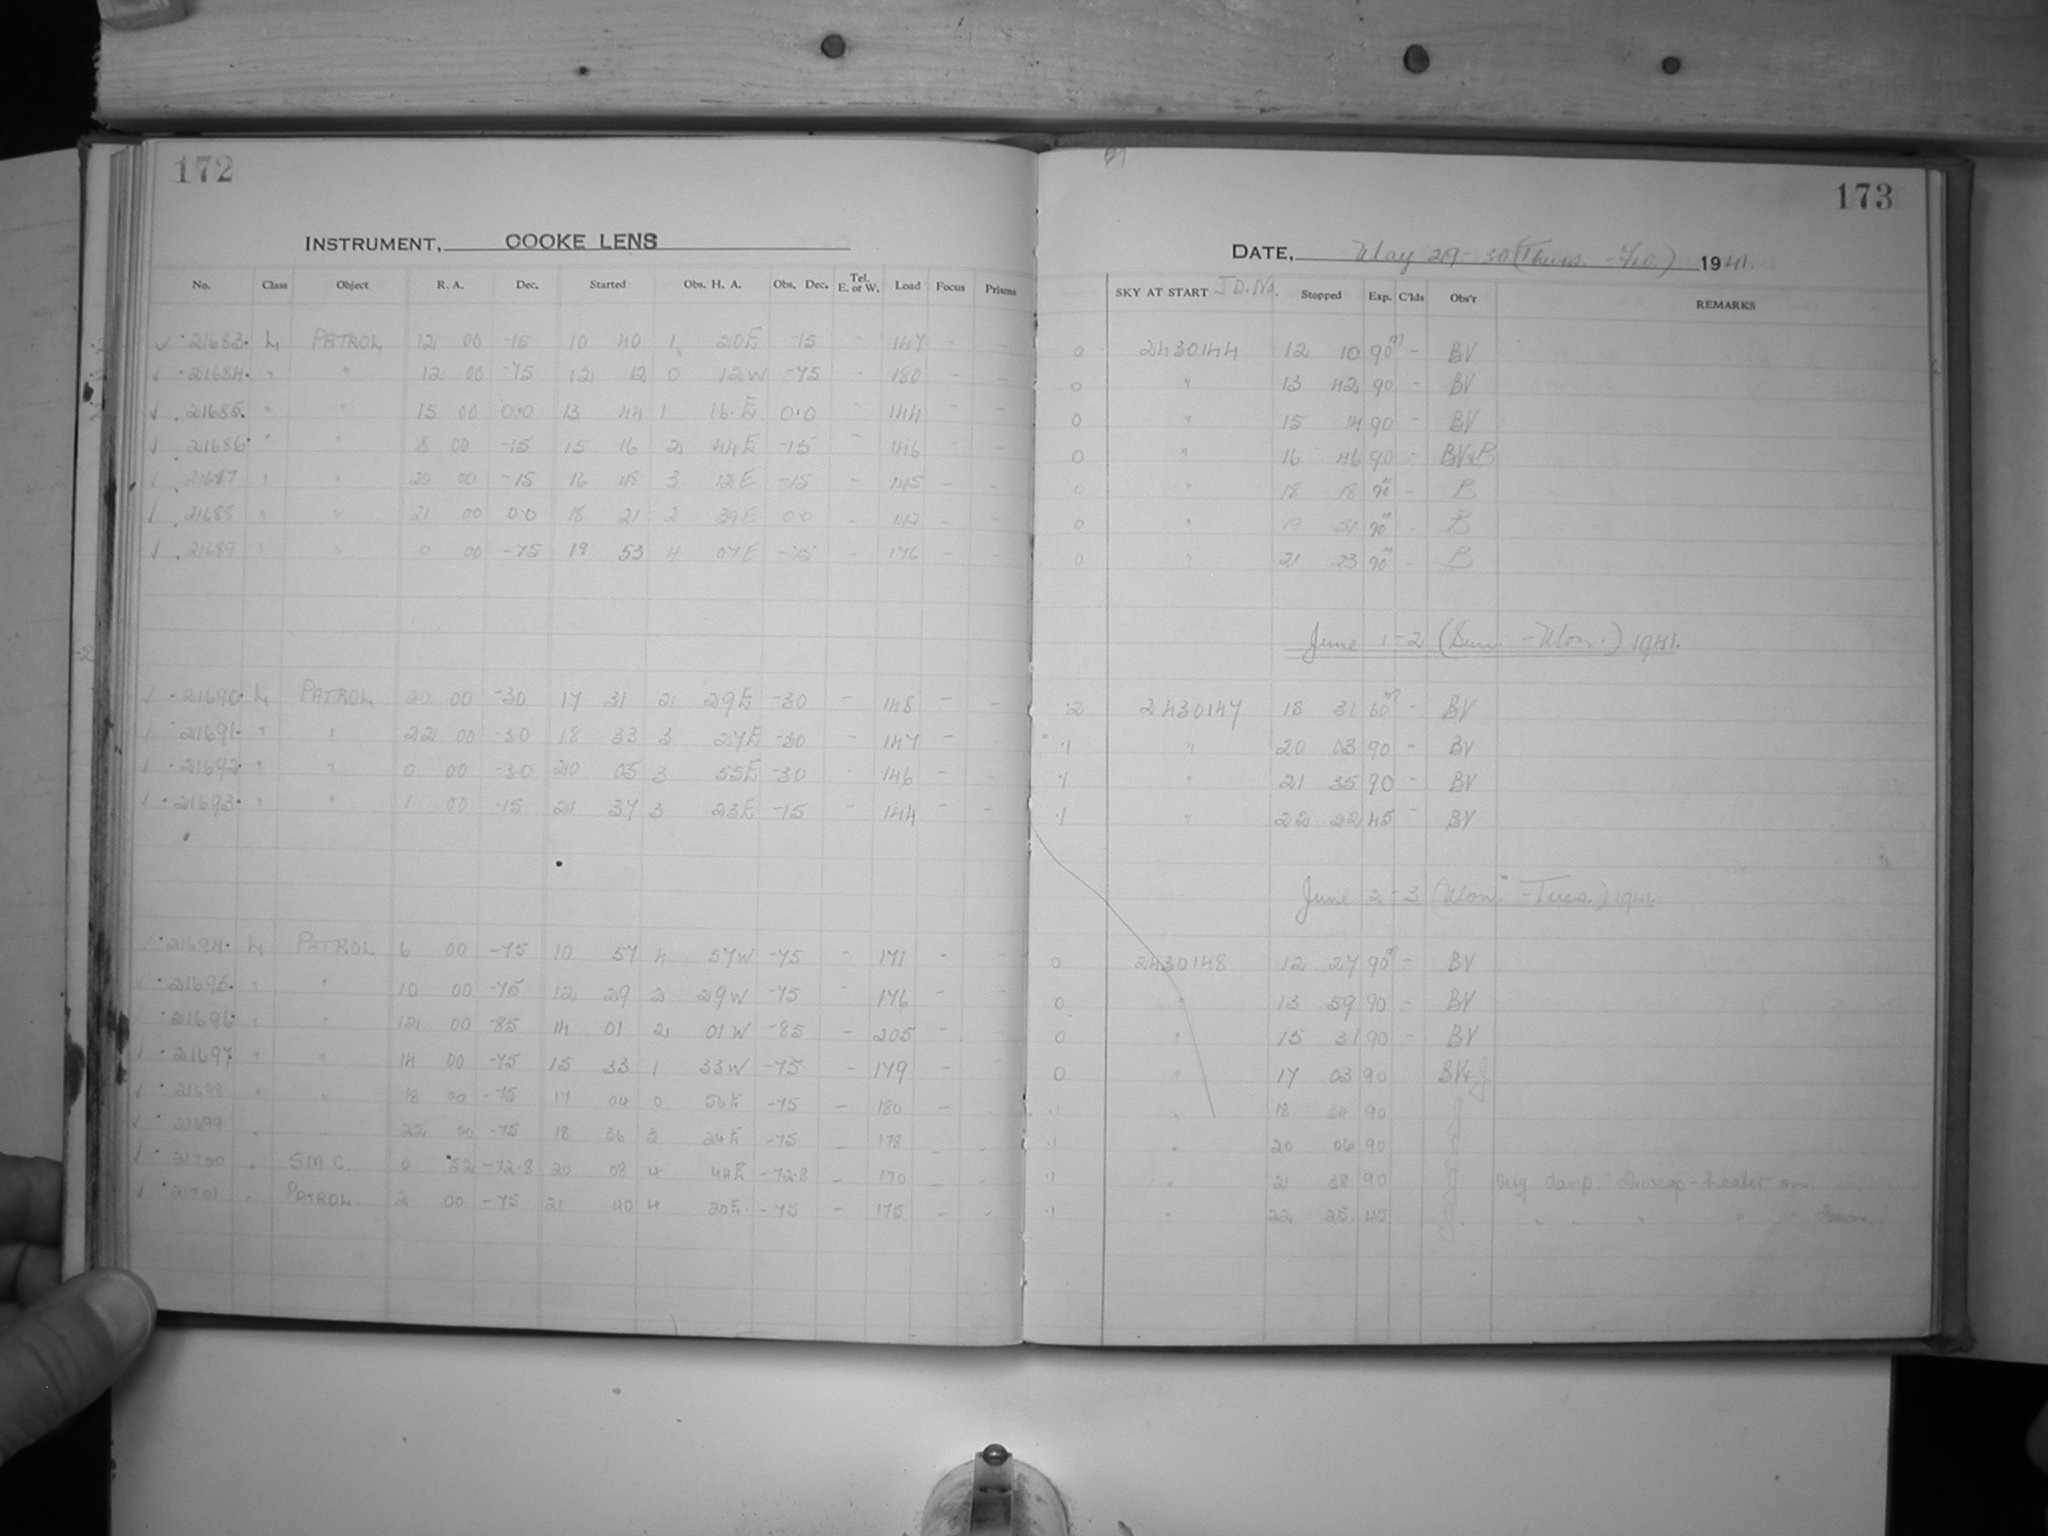 172
INSTRUMENT, COOKE LENS
No. Class Object R. A. Dec. Started Obs. H. A. Obs. Dec. Tel. E. or W. Load Focus Prisms
✓ 21683 L PATROL 12 00 -15 10 40 1 20E -15 - 147 - -
✓ 21684 " " 12 00 -75 12 12 0 12W -75 - 180 - -
✓ 21685 " " 15 00 0.0 13 44 1 16E 0.0 - 144 - -
✓ 21686 " " 18 00 -15 15 16 2 44E -15 - 146 - -
✓ 21687 " " 20 00 -15 16 48 3 12E -15 - 145 - -
✓ 21688 " " 21 00 0.0 18 21 2 39E 0.0 - 142 - -
✓ 21689 " " 0 00 -75 19 53 4 07E -75 - 176 - -
✓ 21690 L PATROL 20 00 -30 17 31 2 29E -30 - 148 - -
✓ 21691 " " 22 00 -30 18 33 3 27E -30 - 147 - -
✓ 21692 " " 0 00 -30 20 05 3 55E -30 - 146 - -
✓ 21693 " " 1 00 -15 21 37 3 23E -15 - 144 - -
✓ 21694 L PATROL 6 00 -75 10 57 4 57W -75 - 171 - -
✓ 21695 " " 10 00 -75 12 29 2 29W -75 - 176 - -
✓ 21696 " " 12 00 -85 14 01 2 01W -85 - 205 - -
✓ 21697 " " 14 00 -75 15 33 1 33W -75 - 179 - -
✓ 21698 " " 18 00 -75 17 04 0 56E -75 - 180 - -
✓ 21699 " " 22 00 -75 18 36 3 24E -75 - 178 - -
✓ 21700 " S.M.C. 0 52 -72.8 20 08 4 44E -72.8 - 170 - -
✓ 21701 " PATROL 2 00 -75 21 40 4 20E -75 - 175 - -
173
DATE, May 29-30 (Thurs. - Fri.) 1941.
SKY AT START J.D. No. Stopped Exp. C'lds Obs'r REMARKS
0 2430144 12 10 90m - BV
0 " 13 42 90 - BV
0 " 15 14 90 - BV
0 " 16 46 90 - BV+B
0 " 18 18 90m - B
0 " 19 51 90m - B
0 " 21 23 90m - B
June 1-2 (Sun - Mon.) 1941.
.2 2430147 18 31 60m - BV
.1 " 20 03 90 - BV
.1 " 21 35 90 - BV
.1 " 22 22 45 - BV
June 2-3 (Mon. - Tues.) 1941.
0 2430148 12 27 90m - BV
0 " 13 59 90 - BV
0 " 15 31 90 - BV
0 " 17 03 90 BV+J
.1 " 18 34 90 J
.1 " 20 06 90 J
.1 " 21 38 90 J Very damp. Dewcap-heater on.
.1 " 22 25 45 J " " " " "